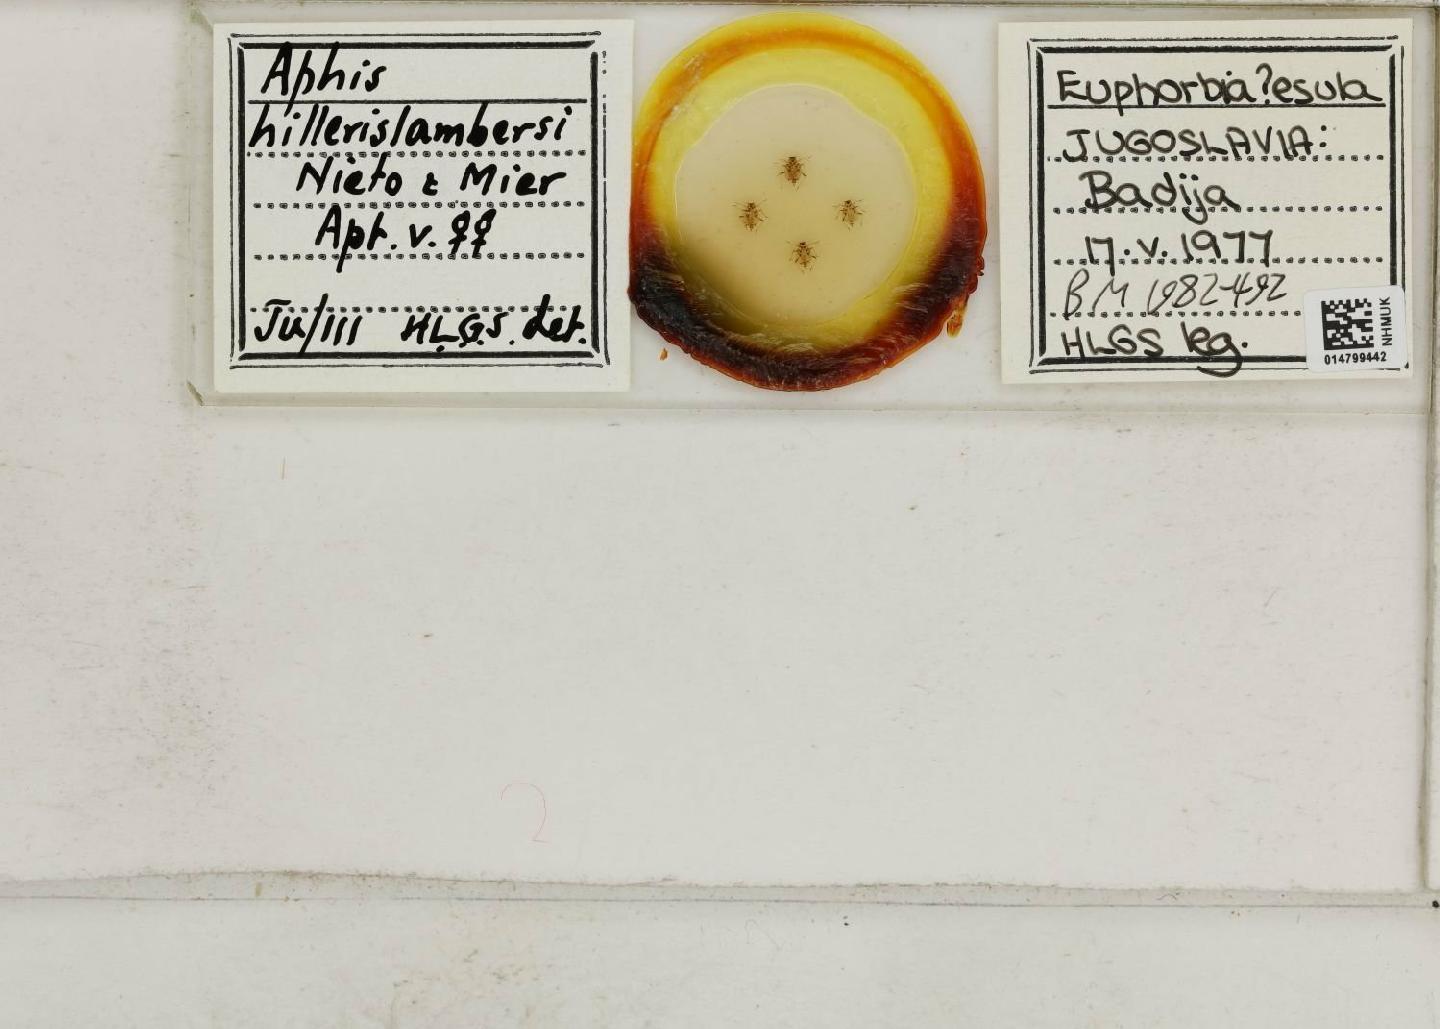 Aphis
hillerislambersi
Nieto & Mier
Apt. v. ♀♀
Ju/111 HLGS. det.
Euphorbia ? esula
JUGOSLAVIA:
Badija
17.v.1977
BM 1982-492
HLGS leg.
NHMUK
014799442
2